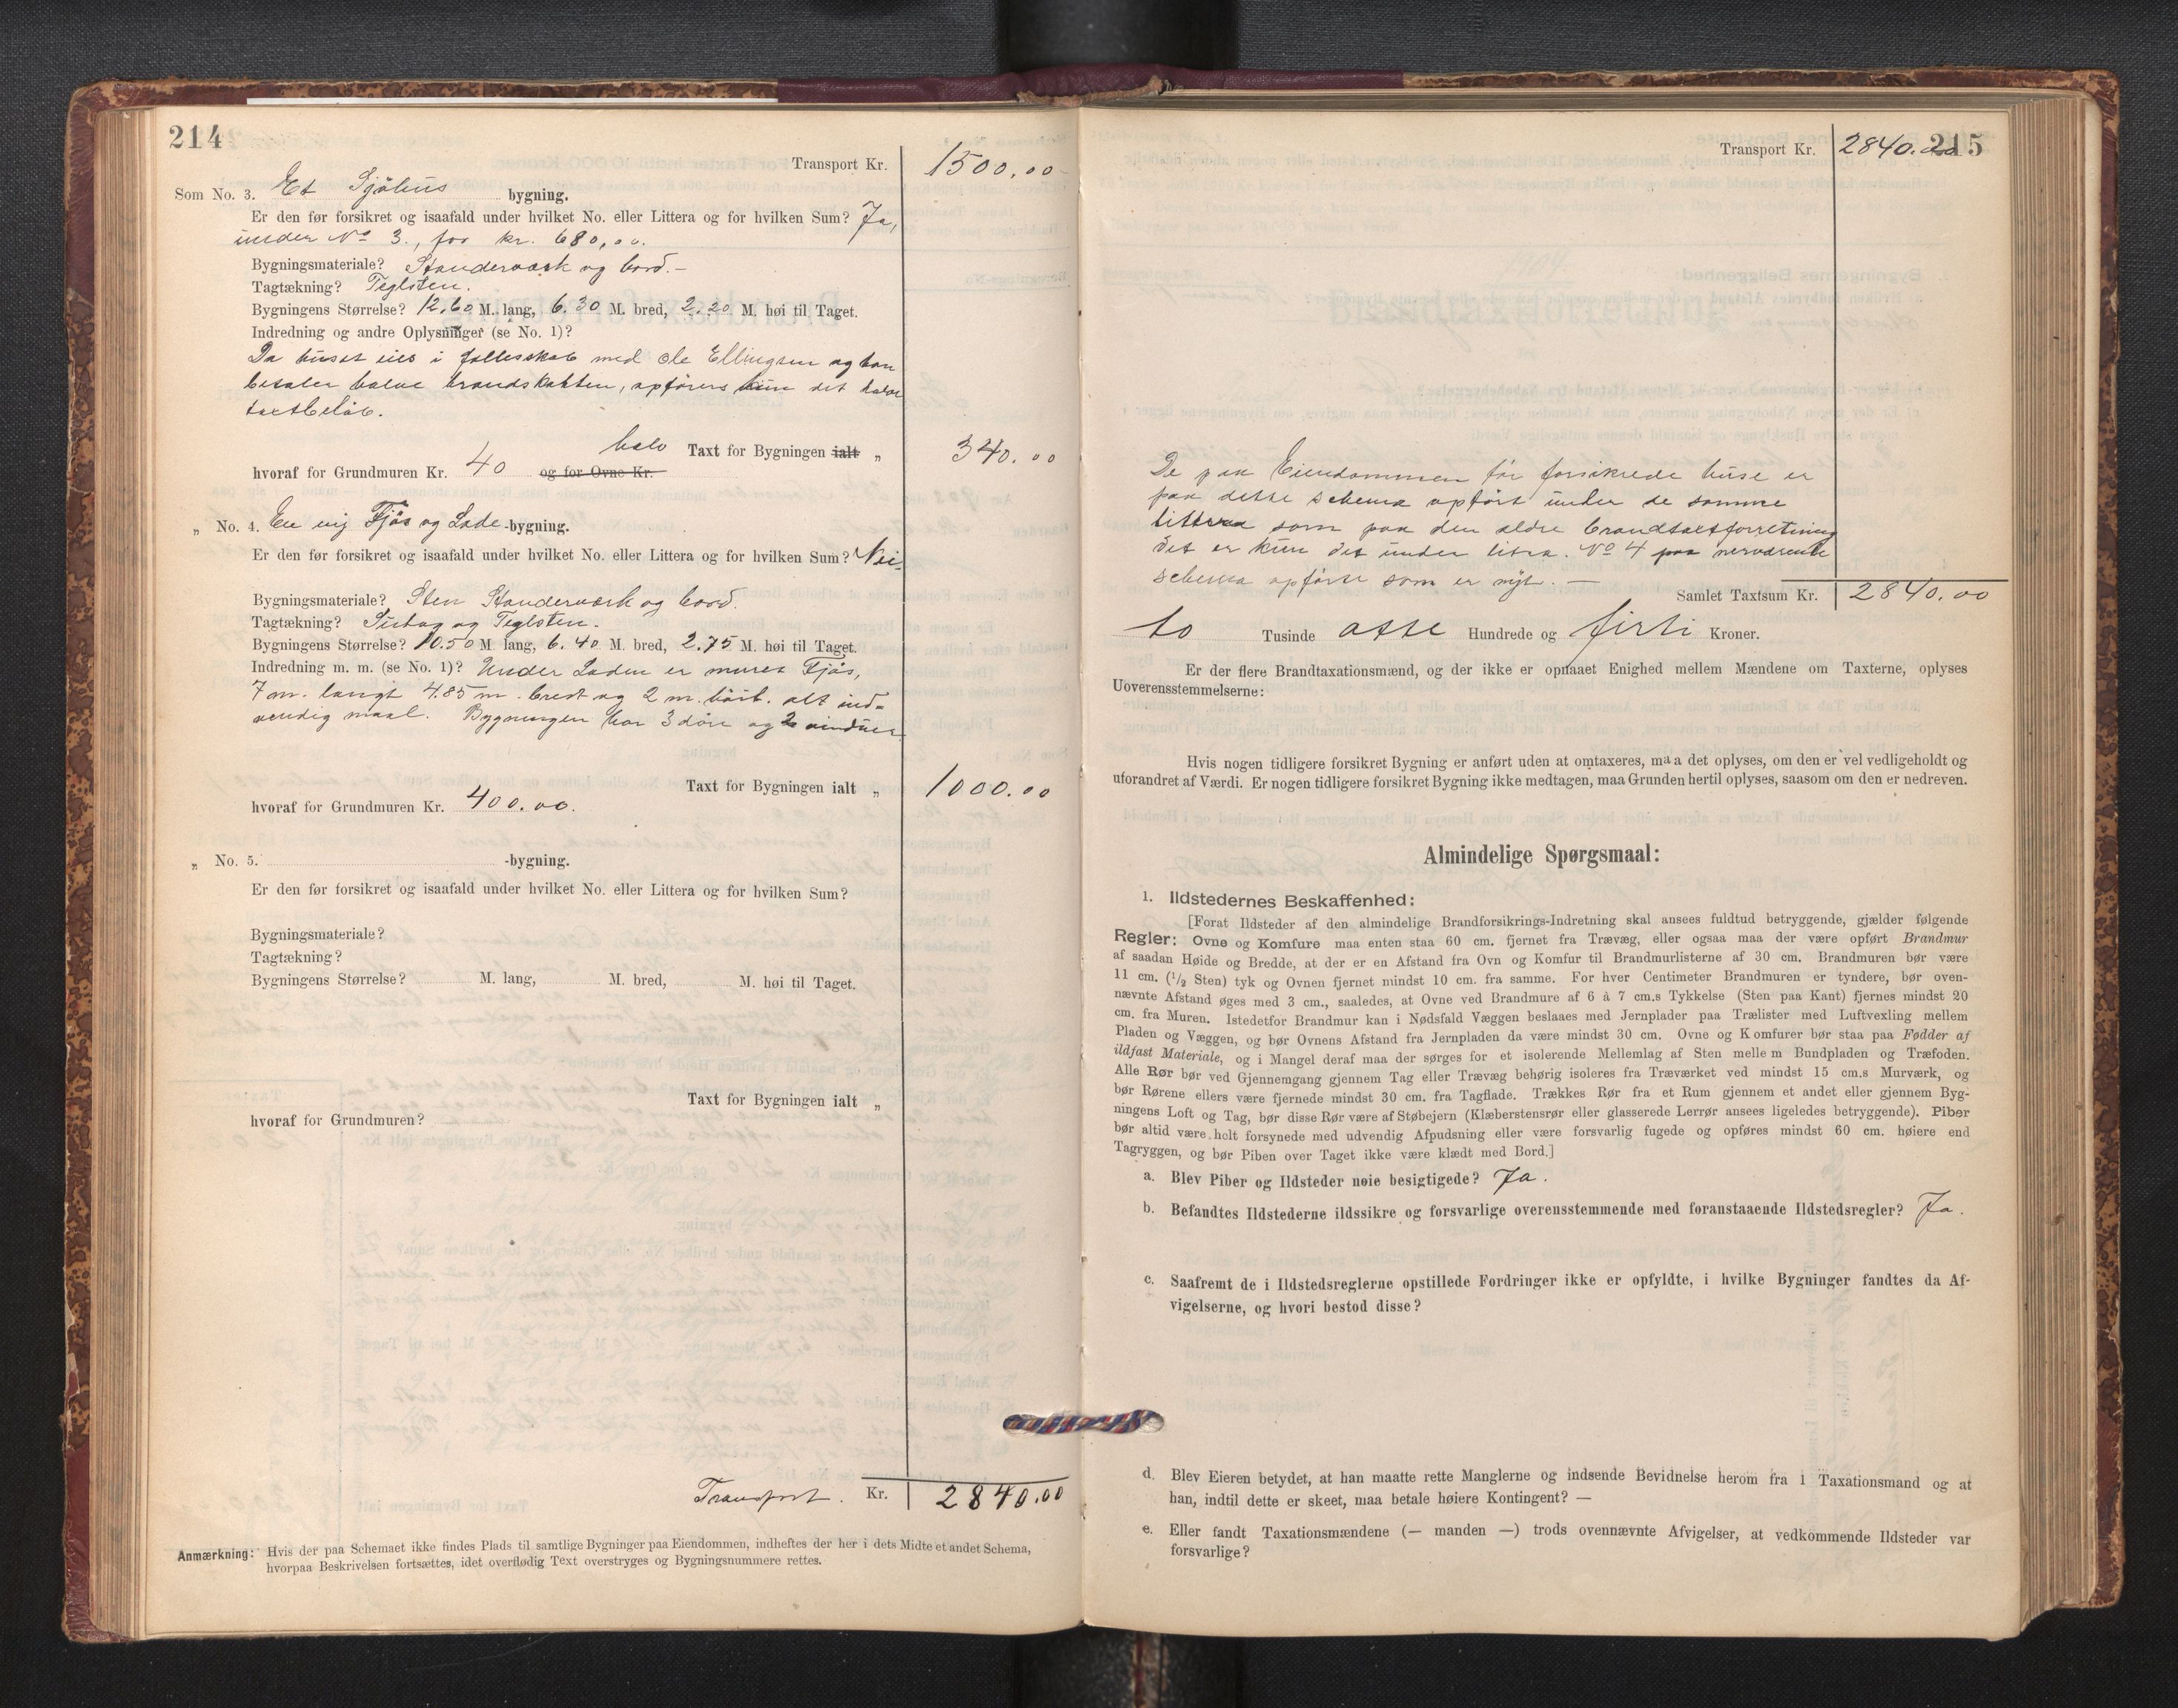 214
Transport Kr. 1500,00
Som No. 3. Et Sjöhus bygning.
Er den før forsikret og isaafald under hvilket No. eller Littera og for hvilken Sum? Ja,
under No 3., for kr. 680,00.
Bygningsmateriale? Standerværk og bord.-
Tagtækning? Teglsten.
Bygningens Størrelse? 12.60 M. lang, 6.30 M. bred, 2.20 M. høi til Taget.
Indredning og andre Oplysninger (se No. 1)?
Da huset eies i fællesskab med Ole Ellingsen og han
betaler halve brandskatten, opføres kun det halve
taxtbeløb.
halv Taxt for Bygningen ialt „ 340.00
hvoraf for Grundmuren Kr. 40 og for Ovne Kr.
„ No. 4. En ny Fjøs og Lade-bygning.
Er den før forsikret og isaafald under hvilket No. eller Littera og for hvilken Sum? Nei.
Bygningsmateriale? Sten Standerværk og bord.
Tagtækning? og Teglsten.
Bygningens Størrelse? 10.50 M. lang, 6.40 M. bred, 2.75 M. høi til Taget.
Indredning m. m. (se No. 1)? Under Laden er muret Fjøs,
7 m. langt 4.85 m. bredt og 2 m. høit. alt ind-
vendig maal. Bygningen har 3 døre og 2 vinduer
Taxt for Bygningen ialt „ 1000.00
hvoraf for Grundmuren Kr. 400.00.
„ No. 5. -bygning.
Er den før forsikret og isaafald under hvilket No. eller Littera og for hvilken Sum?
Bygningsmateriale?
Tagtækning?
Bygningens Størrelse? M. lang, M. bred, M. høi til Taget.
Taxt for Bygningen ialt „
hvoraf for Grundmuren?
Transport. Kr. 2840.00
Anmærkning: Hvis der paa Schemaet ikke findes Plads til samtlige Bygninger paa Eiendommen, indheftes der her i dets Midte et andet Schema,
hvorpaa Beskrivelsen fortsættes, idet overflødig Text overstryges og Bygningsnummere rettes.
215
Transport Kr. 2840.00
De paa Eiendommen før forsikrede huse er
paa dette schema opført under de samme
littera som paa den ældre brandtaxtforretning
det er kun det under litra. No 4 paa nærværende
schema opførte som er nyt. —
Samlet Taxtsum Kr. 2840.00
to Tusinde otte Hundrede og firti Kroner.
Er der flere Brandtaxationsmænd, og der ikke er opnaaet Enighed mellem Mændene om Taxterne, oplyses
Uoverensstemmelserne:
Hvis nogen tidligere forsikret Bygning er anført uden at omtaxeres, maa det oplyses, om den er vel vedligeholdt og
uforandret af Værdi. Er nogen tidligere forsikret Bygning ikke medtagen, maa Grunden hertil oplyses, saasom om den er nedreven.
Almindelige Spørgsmaal:
1. Ildstedernes Beskaffenhed:
[Forat Ildsteder af den almindelige Brandforsikrings-Indretning skal ansees fuldtud betryggende, gjælder følgende
Regler: Ovne og Komfure maa enten staa 60 cm. fjernet fra Trævæg, eller ogsaa maa der være opført Brandmur
af saadan Høide og Bredde, at der er en Afstand fra Ovn og Komfur til Brandmurlisterne af 30 cm. Brandmuren bør være
11 cm. (1/2 Sten) tyk og Ovnen fjernet mindst 10 cm. fra samme. For hver Centimeter Brandmuren er tyndere, bør oven-
nævnte Afstand øges med 3 cm., saaledes, at Ovne ved Brandmure af 6 à 7 cm.s Tykkelse (Sten paa Kant) fjernes mindst 20
cm. fra Muren. Istedetfor Brandmur kan i Nødsfald Væggen beslaaes med Jernplader paa Trælister med Luftvexling mellem
Pladen og Væggen, og bør Ovnens Afstand fra Jernpladen da være mindst 30 cm. Ovne og Komfurer bør staa paa Fødder af
ildfast Materiale, og i Mangel deraf maa der sørges for et isolerende Mellemlag af Sten mellem Bundpladen og Træfoden.
Alle Rør bør ved Gjennemgang gjennem Tag eller Trævæg behørig isoleres fra Træværket ved mindst 15 cm.s Murværk, og
bør Rørene ellers være fjernede mindst 30 cm. fra Tagflade. Trækkes Rør fra et Rum gjennem et andet eller gjennem Byg-
ningens Loft og Tag, bør disse Rør være af Støbejern (Klæberstensrør eller glasserede Lerrør ansees ligeledes betryggende). Piber
bør altid være helt forsynede med udvendig Afpudsning eller være forsvarlig fugede og opføres mindst 60 cm. høiere end
Tagryggen, og bør Piben over Taget ikke være klædt med Bord.]
a. Blev Piber og Ildsteder nøie besigtigede? Ja.
b. Befandtes Ildstederne ildssikre og forsvarlige overensstemmende med foranstaaende Ildstedsregler? Ja.
c. Saafremt de i Ildstedsreglerne opstillede Fordringer ikke er opfyldte, i hvilke Bygninger fandtes da Af-
vigelserne, og hvori bestod disse?
d. Blev Eieren betydet, at han maatte rette Manglerne og indsende Bevidnelse herom fra 1 Taxationsmand og at
han, indtil dette er skeet, maa betale høiere Kontingent? —
e. Eller fandt Taxationsmændene (— manden —) trods ovennævnte Afvigelser, at vedkommende Ildsteder var
forsvarlige?